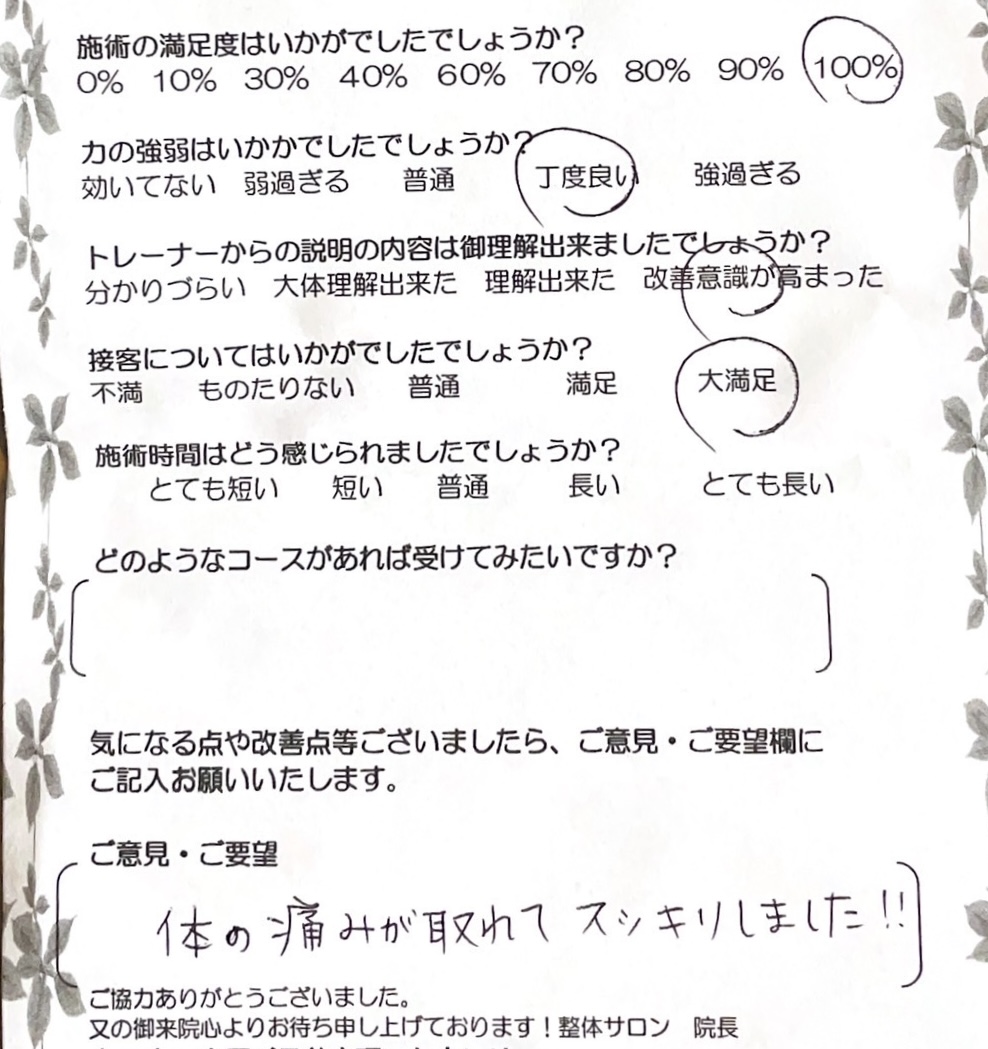 施術の満足度はいかがでしたでしょうか？
0% 10% 30% 40% 60% 70% 80% 90% 100%
力の強弱はいかかでしたでしょうか？
効いてない 弱過ぎる 普通 丁度良い 強過ぎる
トレーナーからの説明の内容は御理解出来ましたでしょうか？
分かりづらい 大体理解出来た 理解出来た 改善意識が高まった
接客についてはいかがでしたでしょうか？
不満 ものたりない 普通 満足 大満足
施術時間はどう感じられましたでしょうか？
とても短い 短い 普通 長い とても長い
どのようなコースがあれば受けてみたいですか？
気になる点や改善点等ございましたら、ご意見・ご要望欄に
ご記入お願いいたします。
ご意見・ご要望
体の痛みが取れて スッキリしました!!
ご協力ありがとうございました。
又の御来院心よりお待ち申し上げております！整体サロン 院長